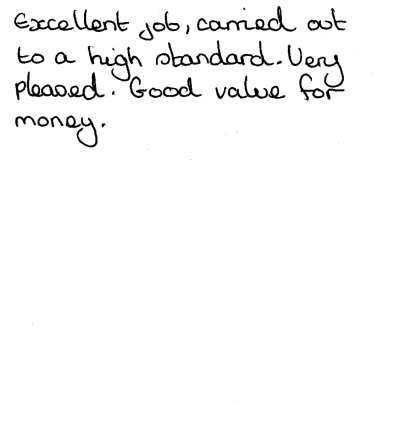 Excellent job, carried out
to a high standard. Very
pleased. Good value for
money.